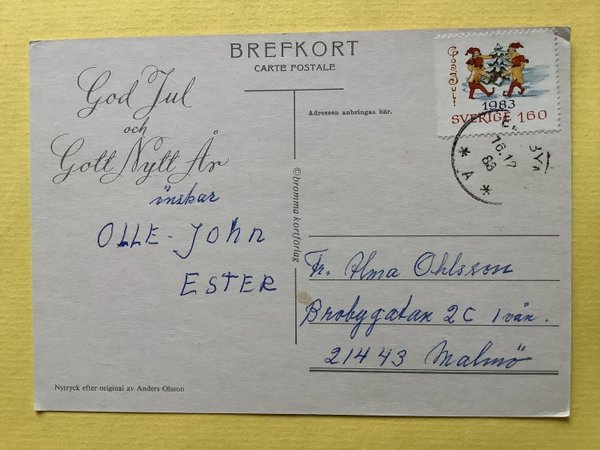 BREFKORT
CARTE POSTALE
God Jul
och
Gott Nytt År
önskar
OLLE-JOHN
ESTER
Nytryck efter original av Anders Olsson
©bromma kortförlag
God Jul!
1983
SVERIGE 160
16.12
83
* A *
Adressen anbringas här.
Fr. Alma Ohlsson
Brobygatan 2C 1 vån.
21443 Malmö